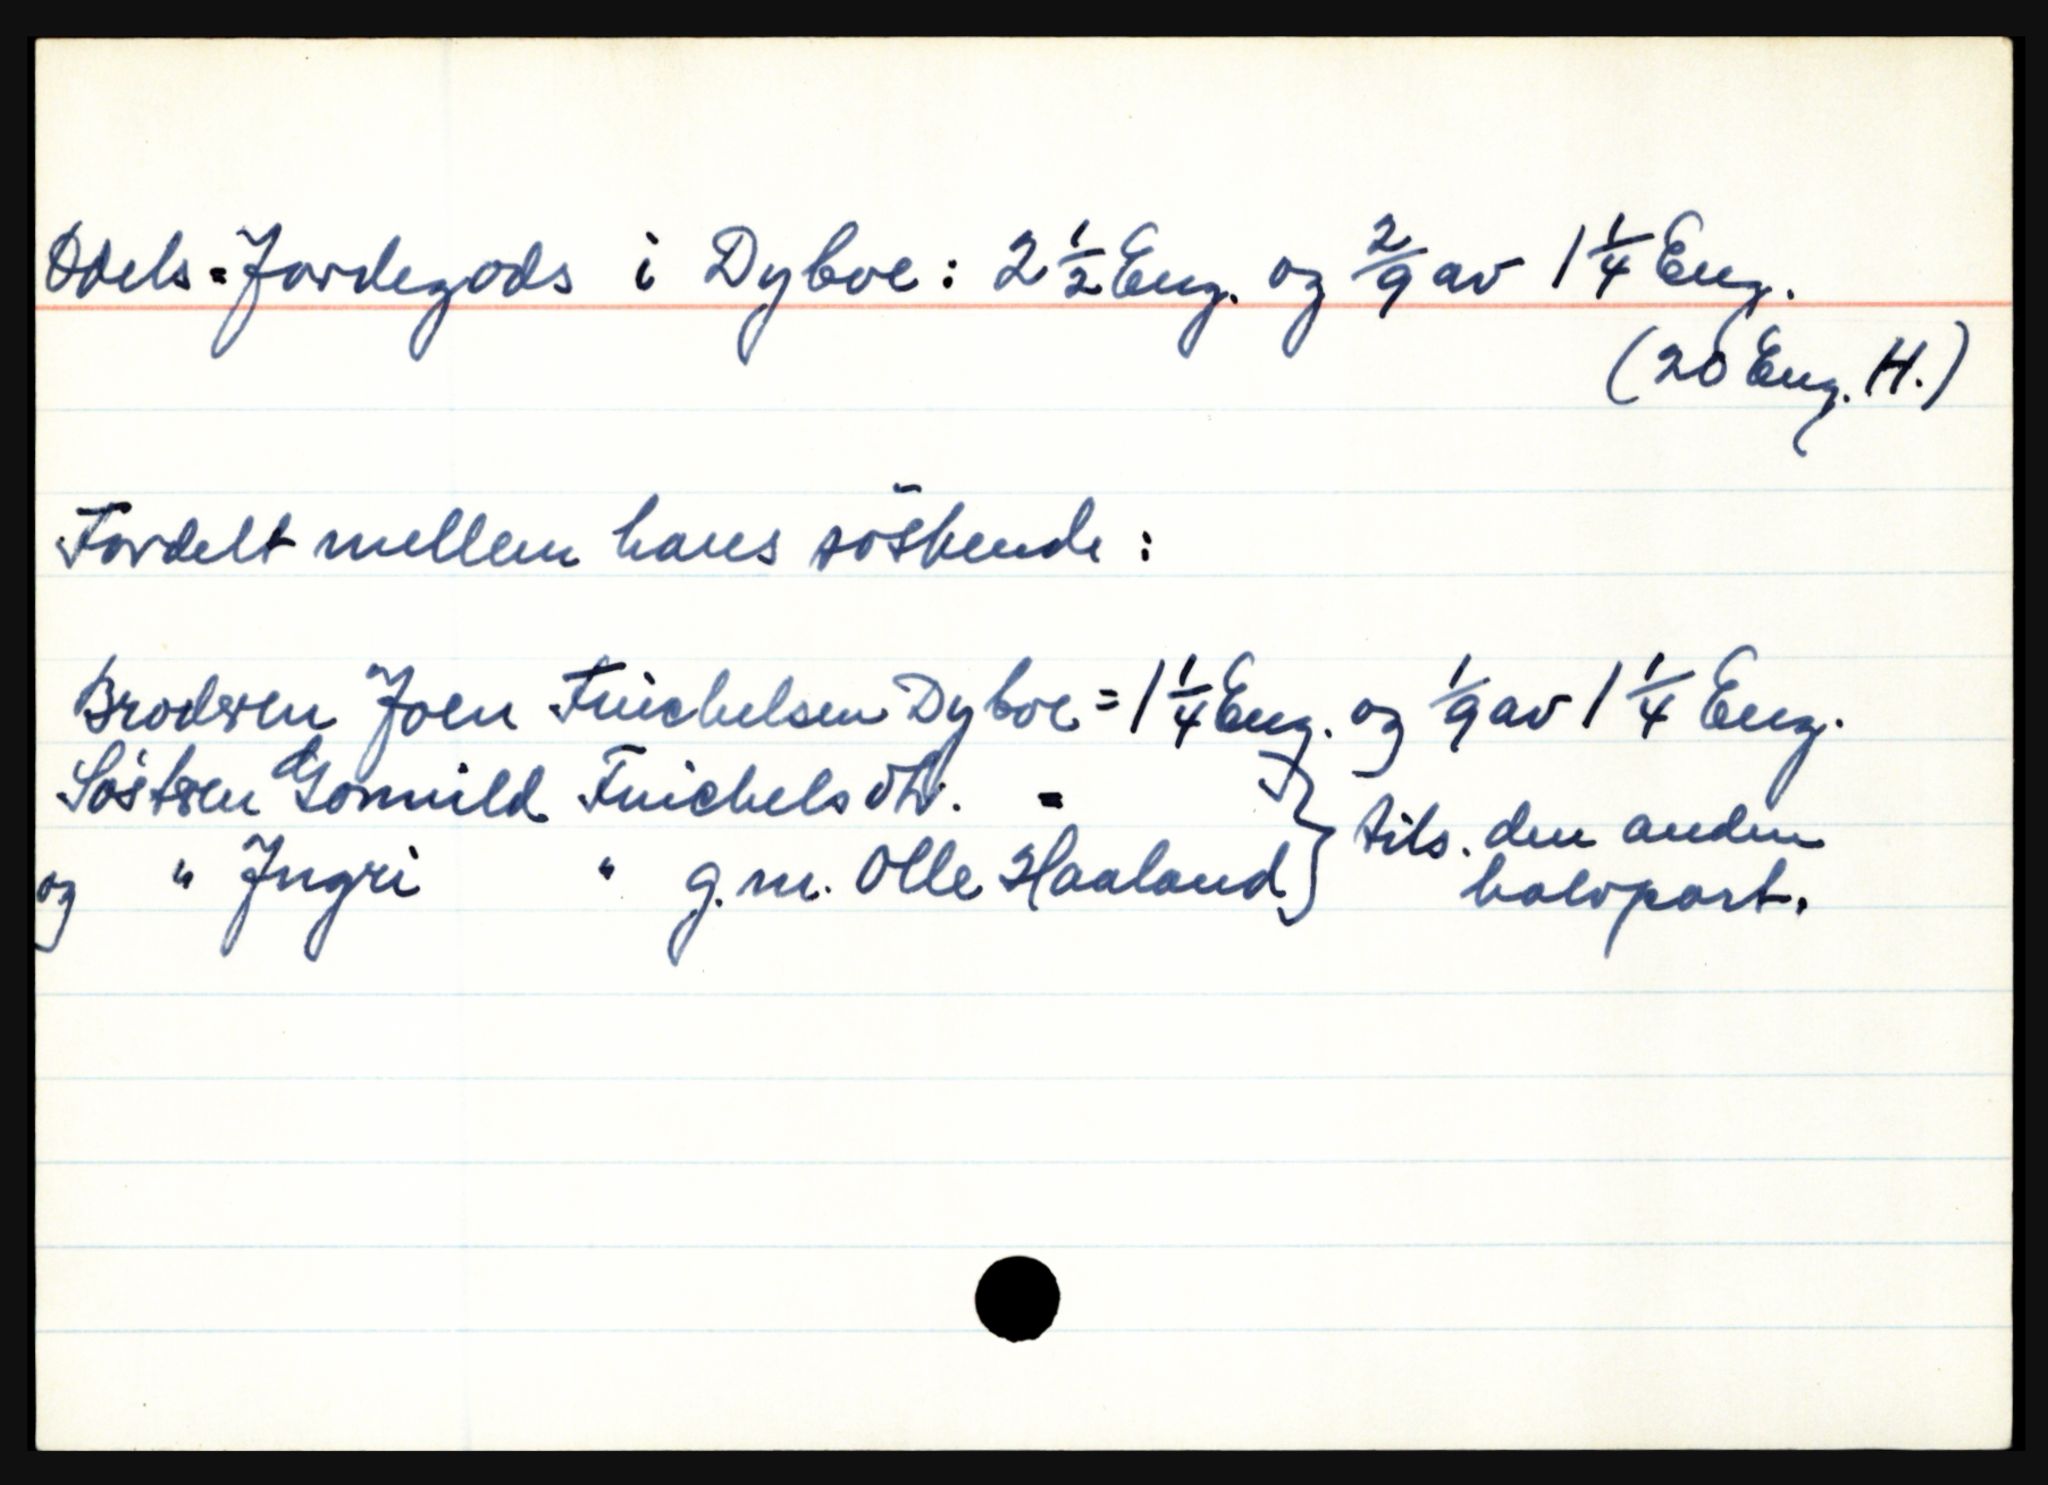 Odels-Jordegods i Dyboe: 2 1/2 Eng. og 2/9 av 1 1/4 Eng.
(20 Eng. H.)
Fordelt mellem hans söskende:
Broderen Joen Fuichelsen Dyboe = 1 1/4 Eng. og 1/9 av 1 1/4 Eng.
Söstren Gonnild Fuichelsdtr. = } tils. den anden
og " Ingri " g.m. Olle Haaland } halvpart.